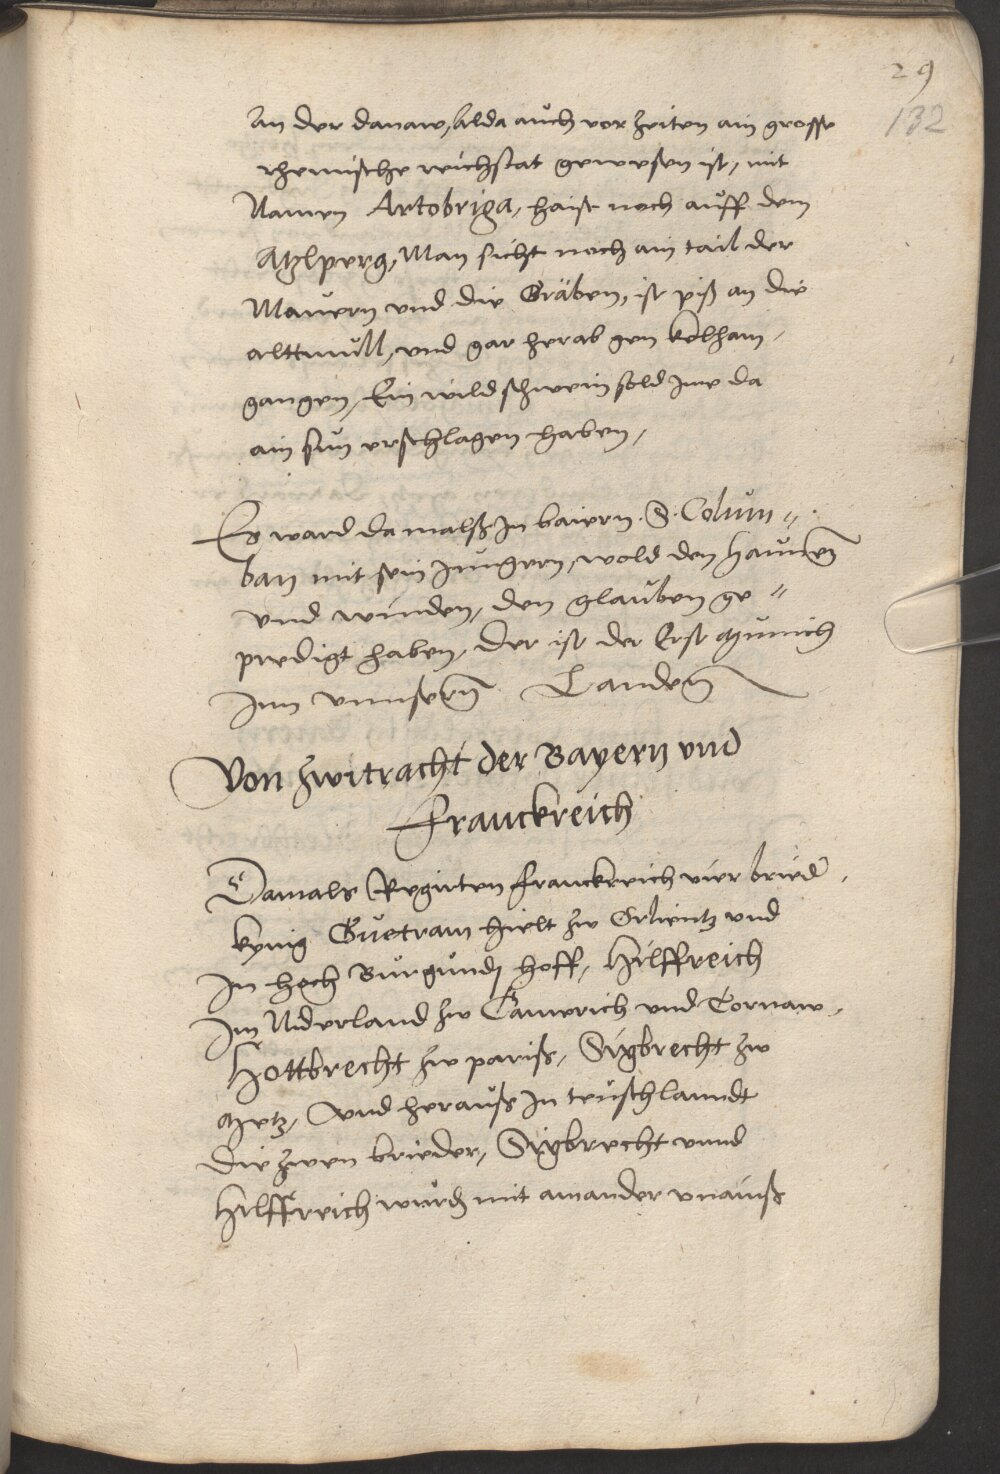 29
132
An der danaw, alda auch vor zeiten ain grosse
rhemische reichstat gewesen ist, mit
Namen Artobriga, haist noch auff dem
Atzlperg, Man sicht noch ain tail der
Mauern vnd die Gräben, ist piß an die
alttmull, vnd gar herab gen kelham
gangen, Ein wildschwein sold Ime da
ain sun erschlagen haben,
Es ward da malß In bairn S. Colum〃
ban mit sein Jungern, wold den haunen
vnd winden, den glauben ge〃
predigt haben, Der ist der Erst Munich
Inn vnnsern Landen
Von zwitracht der Bayern vnd
Franckreich
Damals Regirten franckreich vier bried
kynig Guetram hielt zw Orlientz vnd
In hoch Burgundj hoff, Hilffreich
Im Niderland zw Camerich vnd Tornaw
Hottbrecht zw pariß, Sigbrecht zw
Metz, vnd herauß In teuschlanndt
Die zwen brieder, Sigbrecht vnnd
Hilffreich wurdn mit ainander vnainß